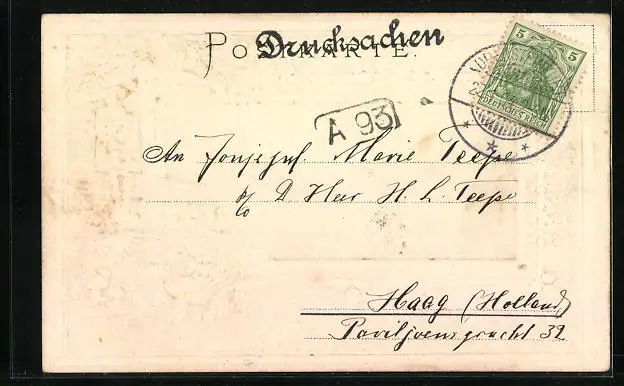 POSTKARTE.
Drucksachen
5 5
DEUTSCHES REICH
A 93
An Jonjejuf. Marie Teepe
p/o D Heer H. L. Teepe
Haag (Holland)
Paviljoensgracht 32